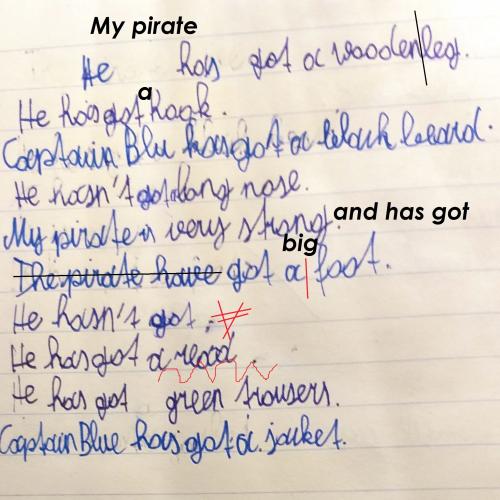 My pirate
He has got a wooden leg.
a
He has got hook.
Captain Blu has got a black beard.
He hasn't got long nose.
My pirate is very strong.
and has got
big
The pirate have got a foot.
He hasn't got.
He has got a
He has got green trousers.
Captain Blue has got a jacket.